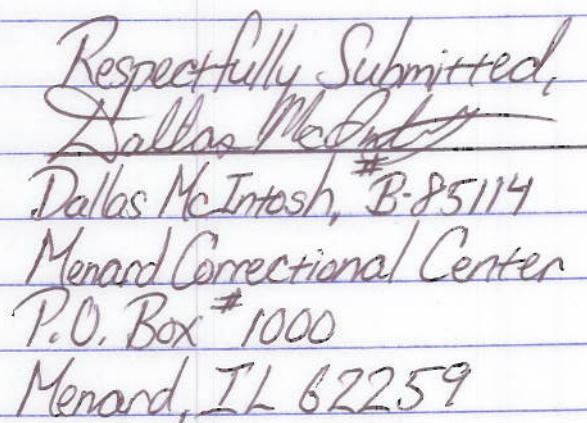 Respectfully Submitted,
Dallas McIntosh
Dallas McIntosh, #B-85114
Menard Correctional Center
P.O. Box #1000
Menard, IL 62259